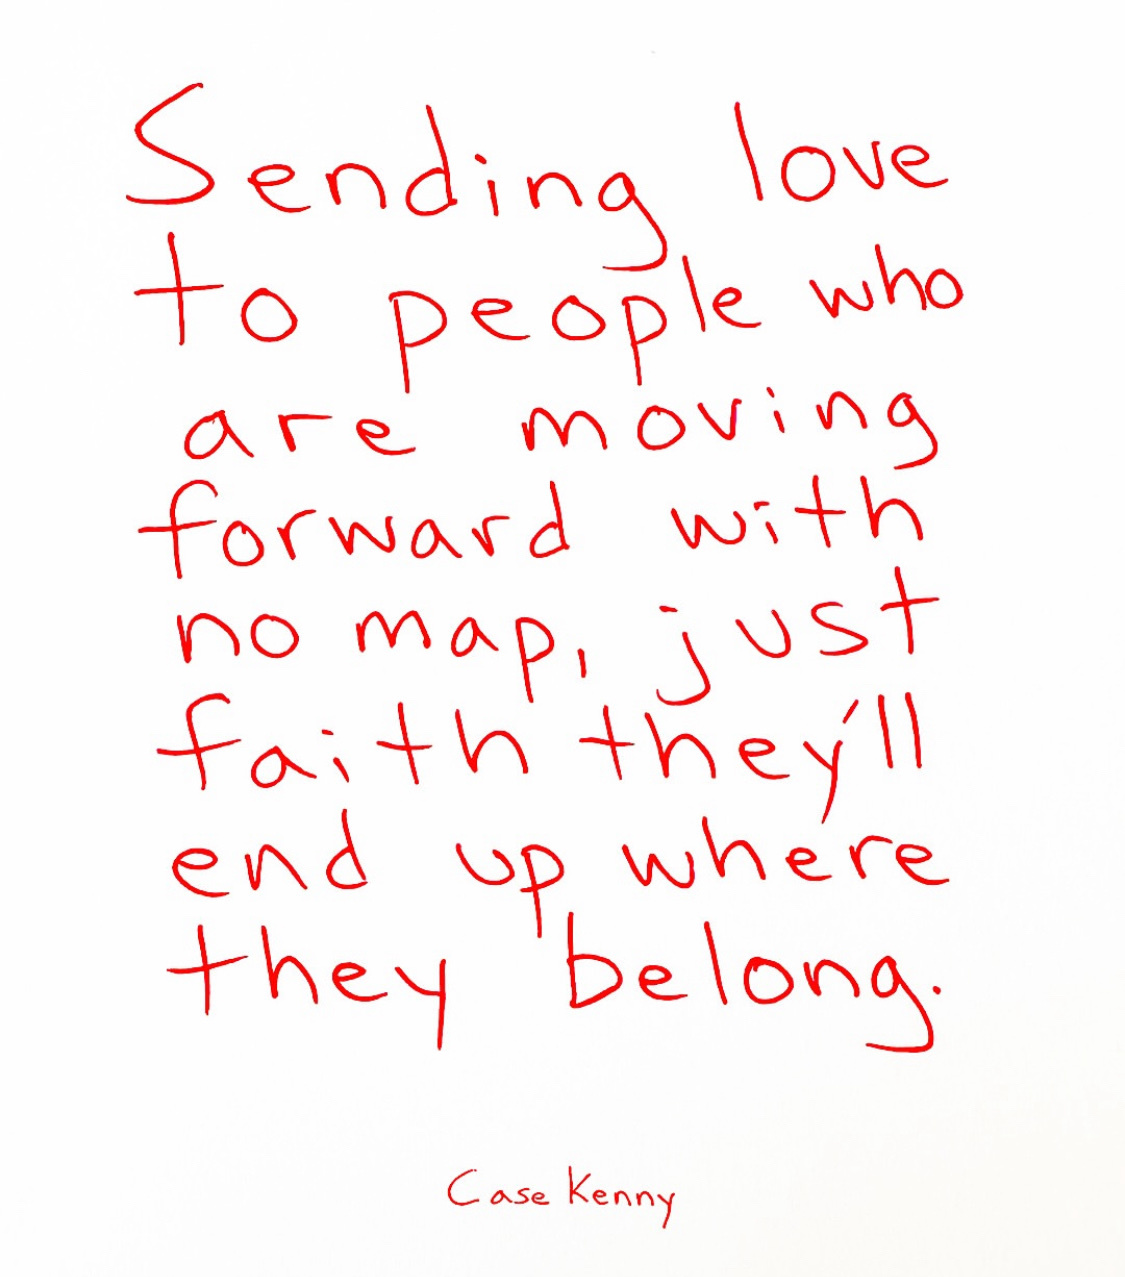 Sending love
to people who
are moving
forward with
no map, just
faith they'll
end up where
they belong.
Case Kenny